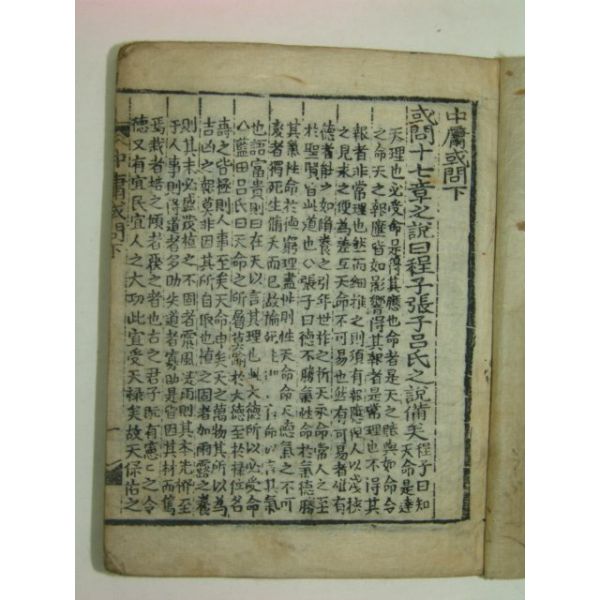 中庸或問下
或問十七章之說曰程子張子呂氏之說備矣程子曰知
天命是達
天理也必受命是得其應也命者是天之賦與如命令
之命天之報應皆如影響得其報者是常理也不得其
報者非常理也然而細推之則須有報應但人以淺狹
之見求之便爲差互天命不可易也然有可易者惟有
德者能之如脩養之引年世祚之祈天永命常人之至
於聖賢皆此道也○張子曰德不勝氣性命於氣德勝
其氣性命於德窮理盡性則性天德命天理氣之不可
變者獨死生脩夭而已故論死生則曰有命以言其氣
也語富貴則曰在天以言其理也此大德所以必受命
○藍田呂氏曰天命之所屬莫踰於大德至於祿位名
壽之皆極則人事至矣天命申矣天之萬物其所以爲
吉凶之報莫非因其所自取也植之固者加雨露之養
則其末必盛茂植之不固者震風凌雨則其本先撥至
于人事則得道者多助失道者寡助是皆因其材而篤
焉栽者培之傾者覆之者也古之君子旣有憲憲之令
德又有宜民宜人之大功此宜受天祿矣故天保佑之
中庸或問下
一